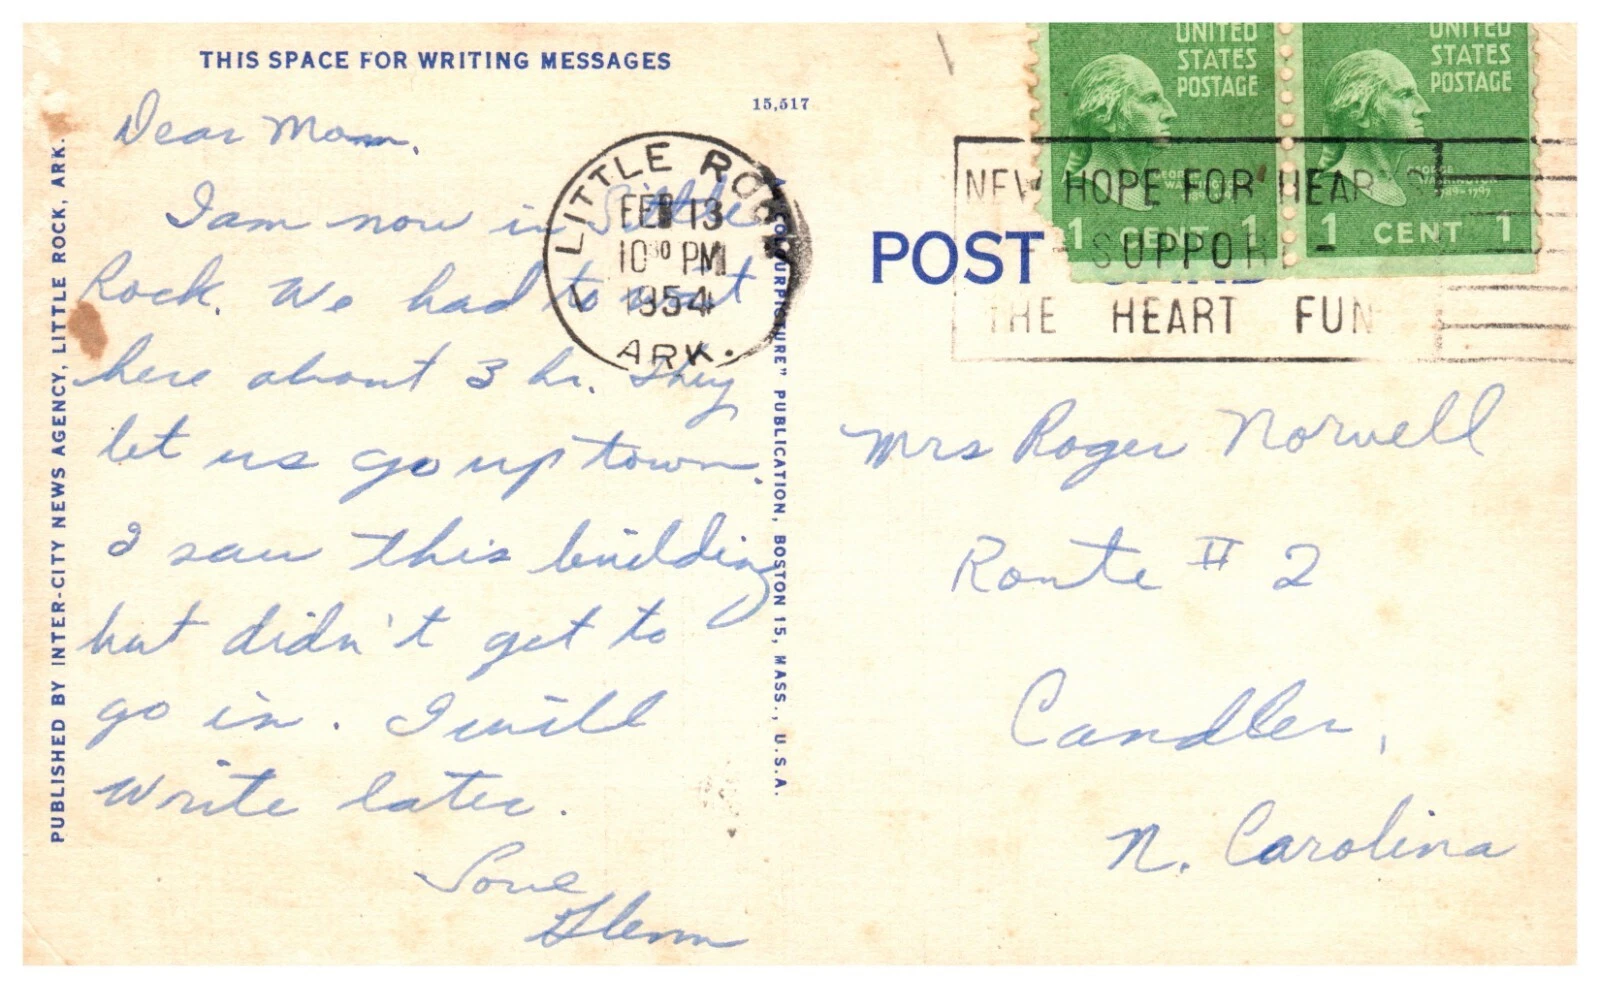 THIS SPACE FOR WRITING MESSAGES
15,517
Dear Mom,
I am now in Little
Rock. We had to wait
here about 3 hr. They
let us go up town.
I saw this building
but didn't get to
go in. I will
write later.
Love
Glenn
PUBLISHED BY INTER-CITY NEWS AGENCY, LITTLE ROCK, ARK.
COLOURPICTURE" PUBLICATION, BOSTON 15, MASS., U.S.A.
LITTLE ROCK
FEB 13
10 30 PM
1954
ARK.
UNITED
STATES
POSTAGE
GEORGE
WASHINGTON
1789-1797
1 CENT 1
UNITED
STATES
POSTAGE
GEORGE
WASHINGTON
1789-1797
1 CENT 1
NEW HOPE FOR HEARTS
SUPPORT
THE HEART FUND
POST CARD
Mrs Roger Norvell
Route # 2
Candler,
N. Carolina